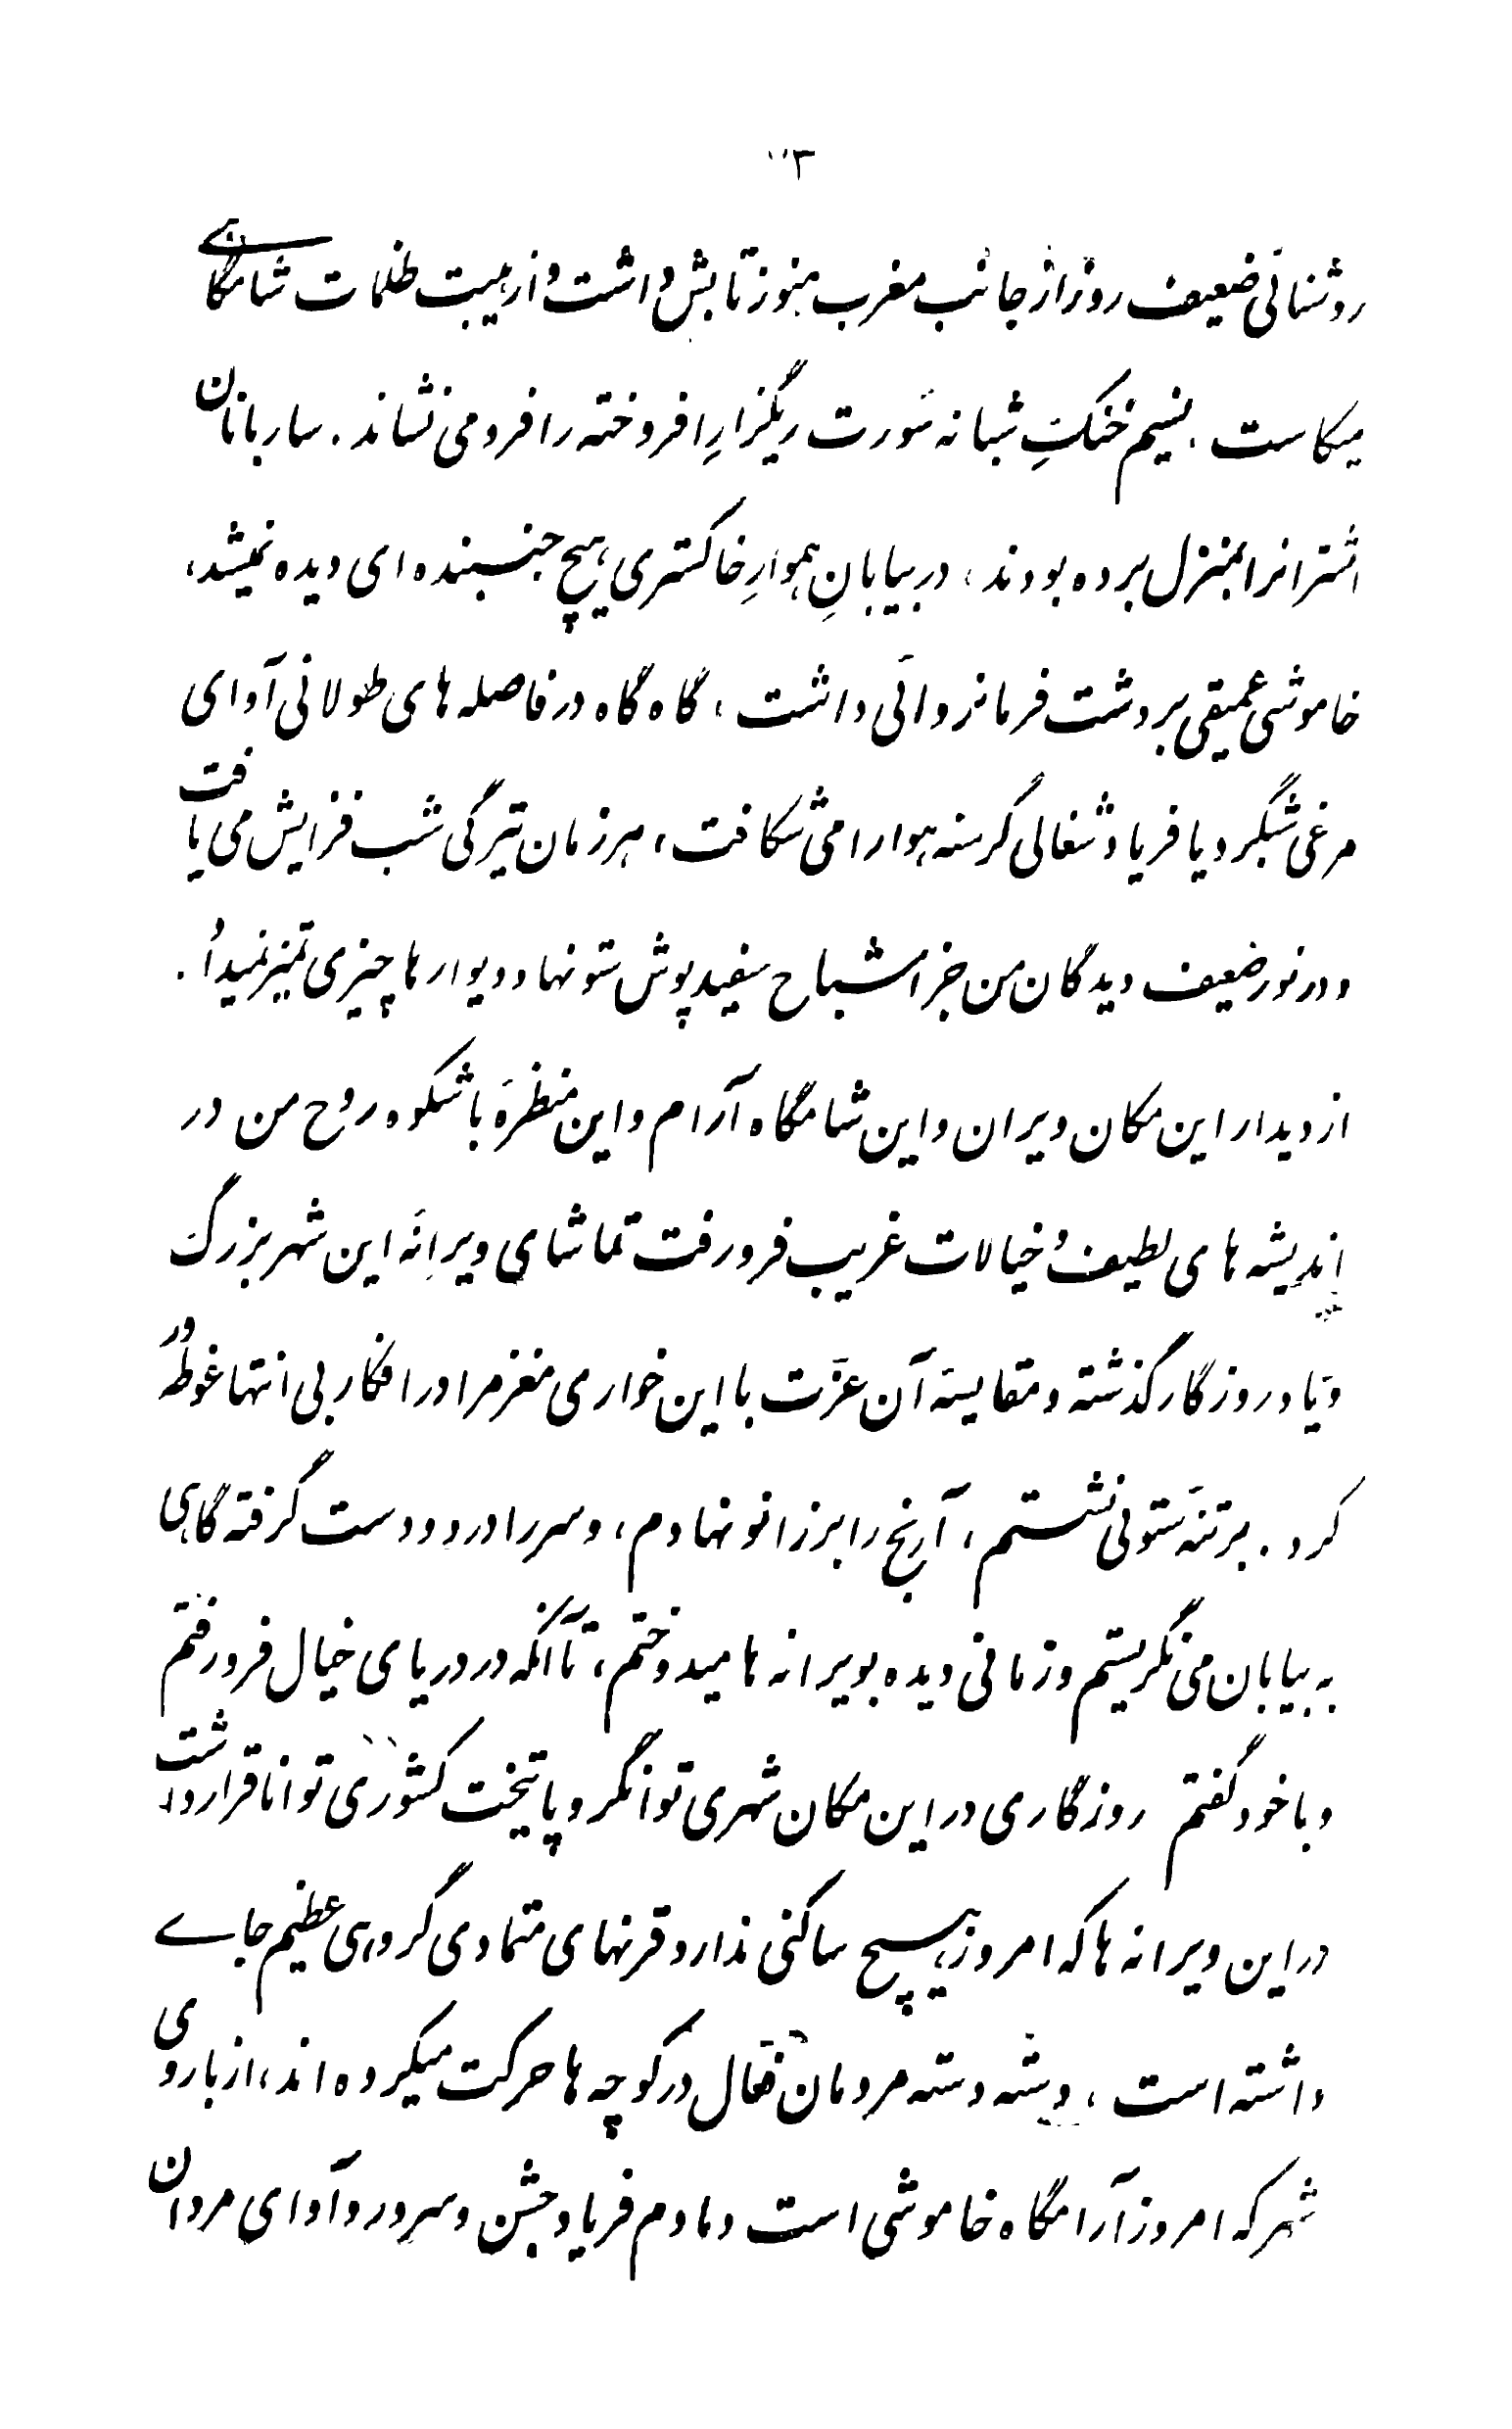 ۳
روشنائی ضعیف روز از جانب مغرب هنوز تابش داشت و از هیبت ظلمات شامگاهی
میکاست . نسیم خنکِ شبانه سَورت ریگزارِ افروخته را فرو می نشاند . ساربانان
اشترانرا بمنزل برده بودند ، در بیابانِ هموارِ خاکستری هیچ جنبنده ای دیده نمیشد ،
خاموشی عمیقی بر دشت فرمانروائی داشت ، گاه گاه در فاصله های طولانی آوای
مرغی شبگرد یا فریاد شغالی گرسنه هوا را می شکافت ، هر زمان تیرگی شب فزایش می یافت
و در نور ضعیف دیدگان من جز اشباح سفید پوش ستونها و دیوارها چیزی تمیز نمیداد .
از دیدار این مکان ویران و این شامگاه آرام و این منظرهٔ با شکوه روح من در
اندیشه های لطیف و خیالات غریب فرو رفت تماشای ویرانهٔ این شهر بزرگ
و یاد روزگار گذشته و مقایسهٔ آن عزّت با این خواری مغز مرا در افکار بی انتها غوطه ور
کرد . بر تنهٔ ستونی نشستم ، آرنج را بر زانو نهادم ، و سر را در دو دست گرفته گاهی
به بیابان می نگریستم و زمانی دیده بویرانه ها میدوختم ، تا آنکه در دریای خیال فرو رفتم
و با خود گفتم روزگاری در این مکان شهری توانگر و پایتخت کشوری توانا قرار داشت
در این ویرانه ها که امروز هیچ ساکنی ندارد قرنهای متمادی گروهی عظیم جای
داشته است ، دسته دسته مردمان فعّال در کوچه ها حرکت میکرده اند ، از باروی
شهر که امروز آرامگاه خاموشی است دمادم فریاد جشن و سرور و آوای مردان